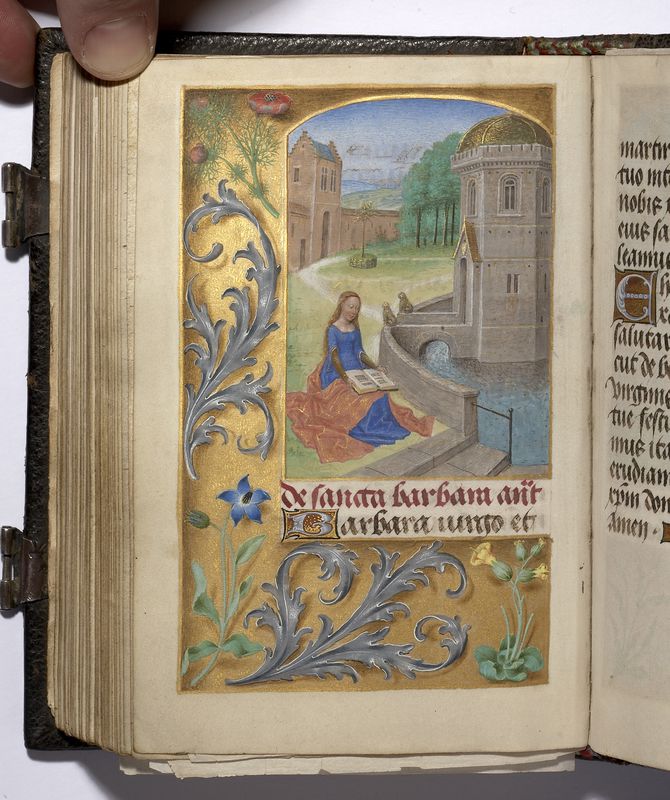 de sancta barbara añt
Barbara uirgo et
martir
tuo int
nobis
eius sa
leamus
salutar
cut de b
virginis
tue festi
mus ita
erudiam
xpm don
amen